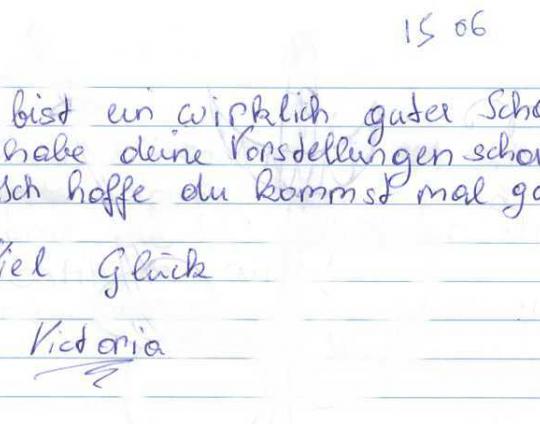 15 06
bist ein wirklich guter Scho
habe deine Vorstellungen schon
Ich hoffe du kommst mal ga
iel Glück
Victoria